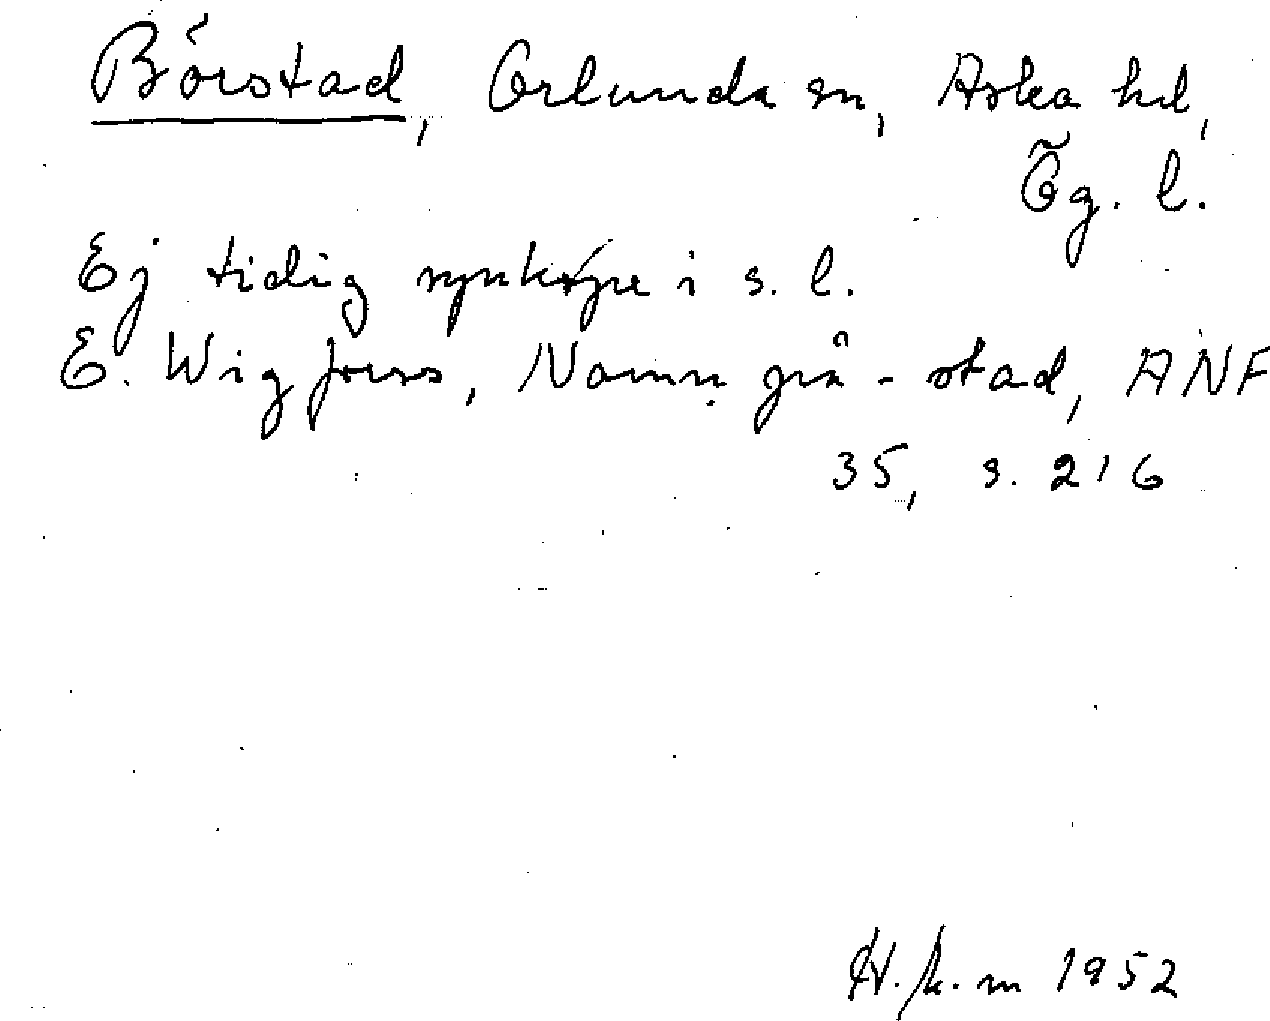 Börstad, Orlunda sn, Aska hd,
Ög. l.
Ej tidig synkope i s. l.
E. Wigforss, Namn på -stad, ANF
35, s. 216
H. k. m 1952